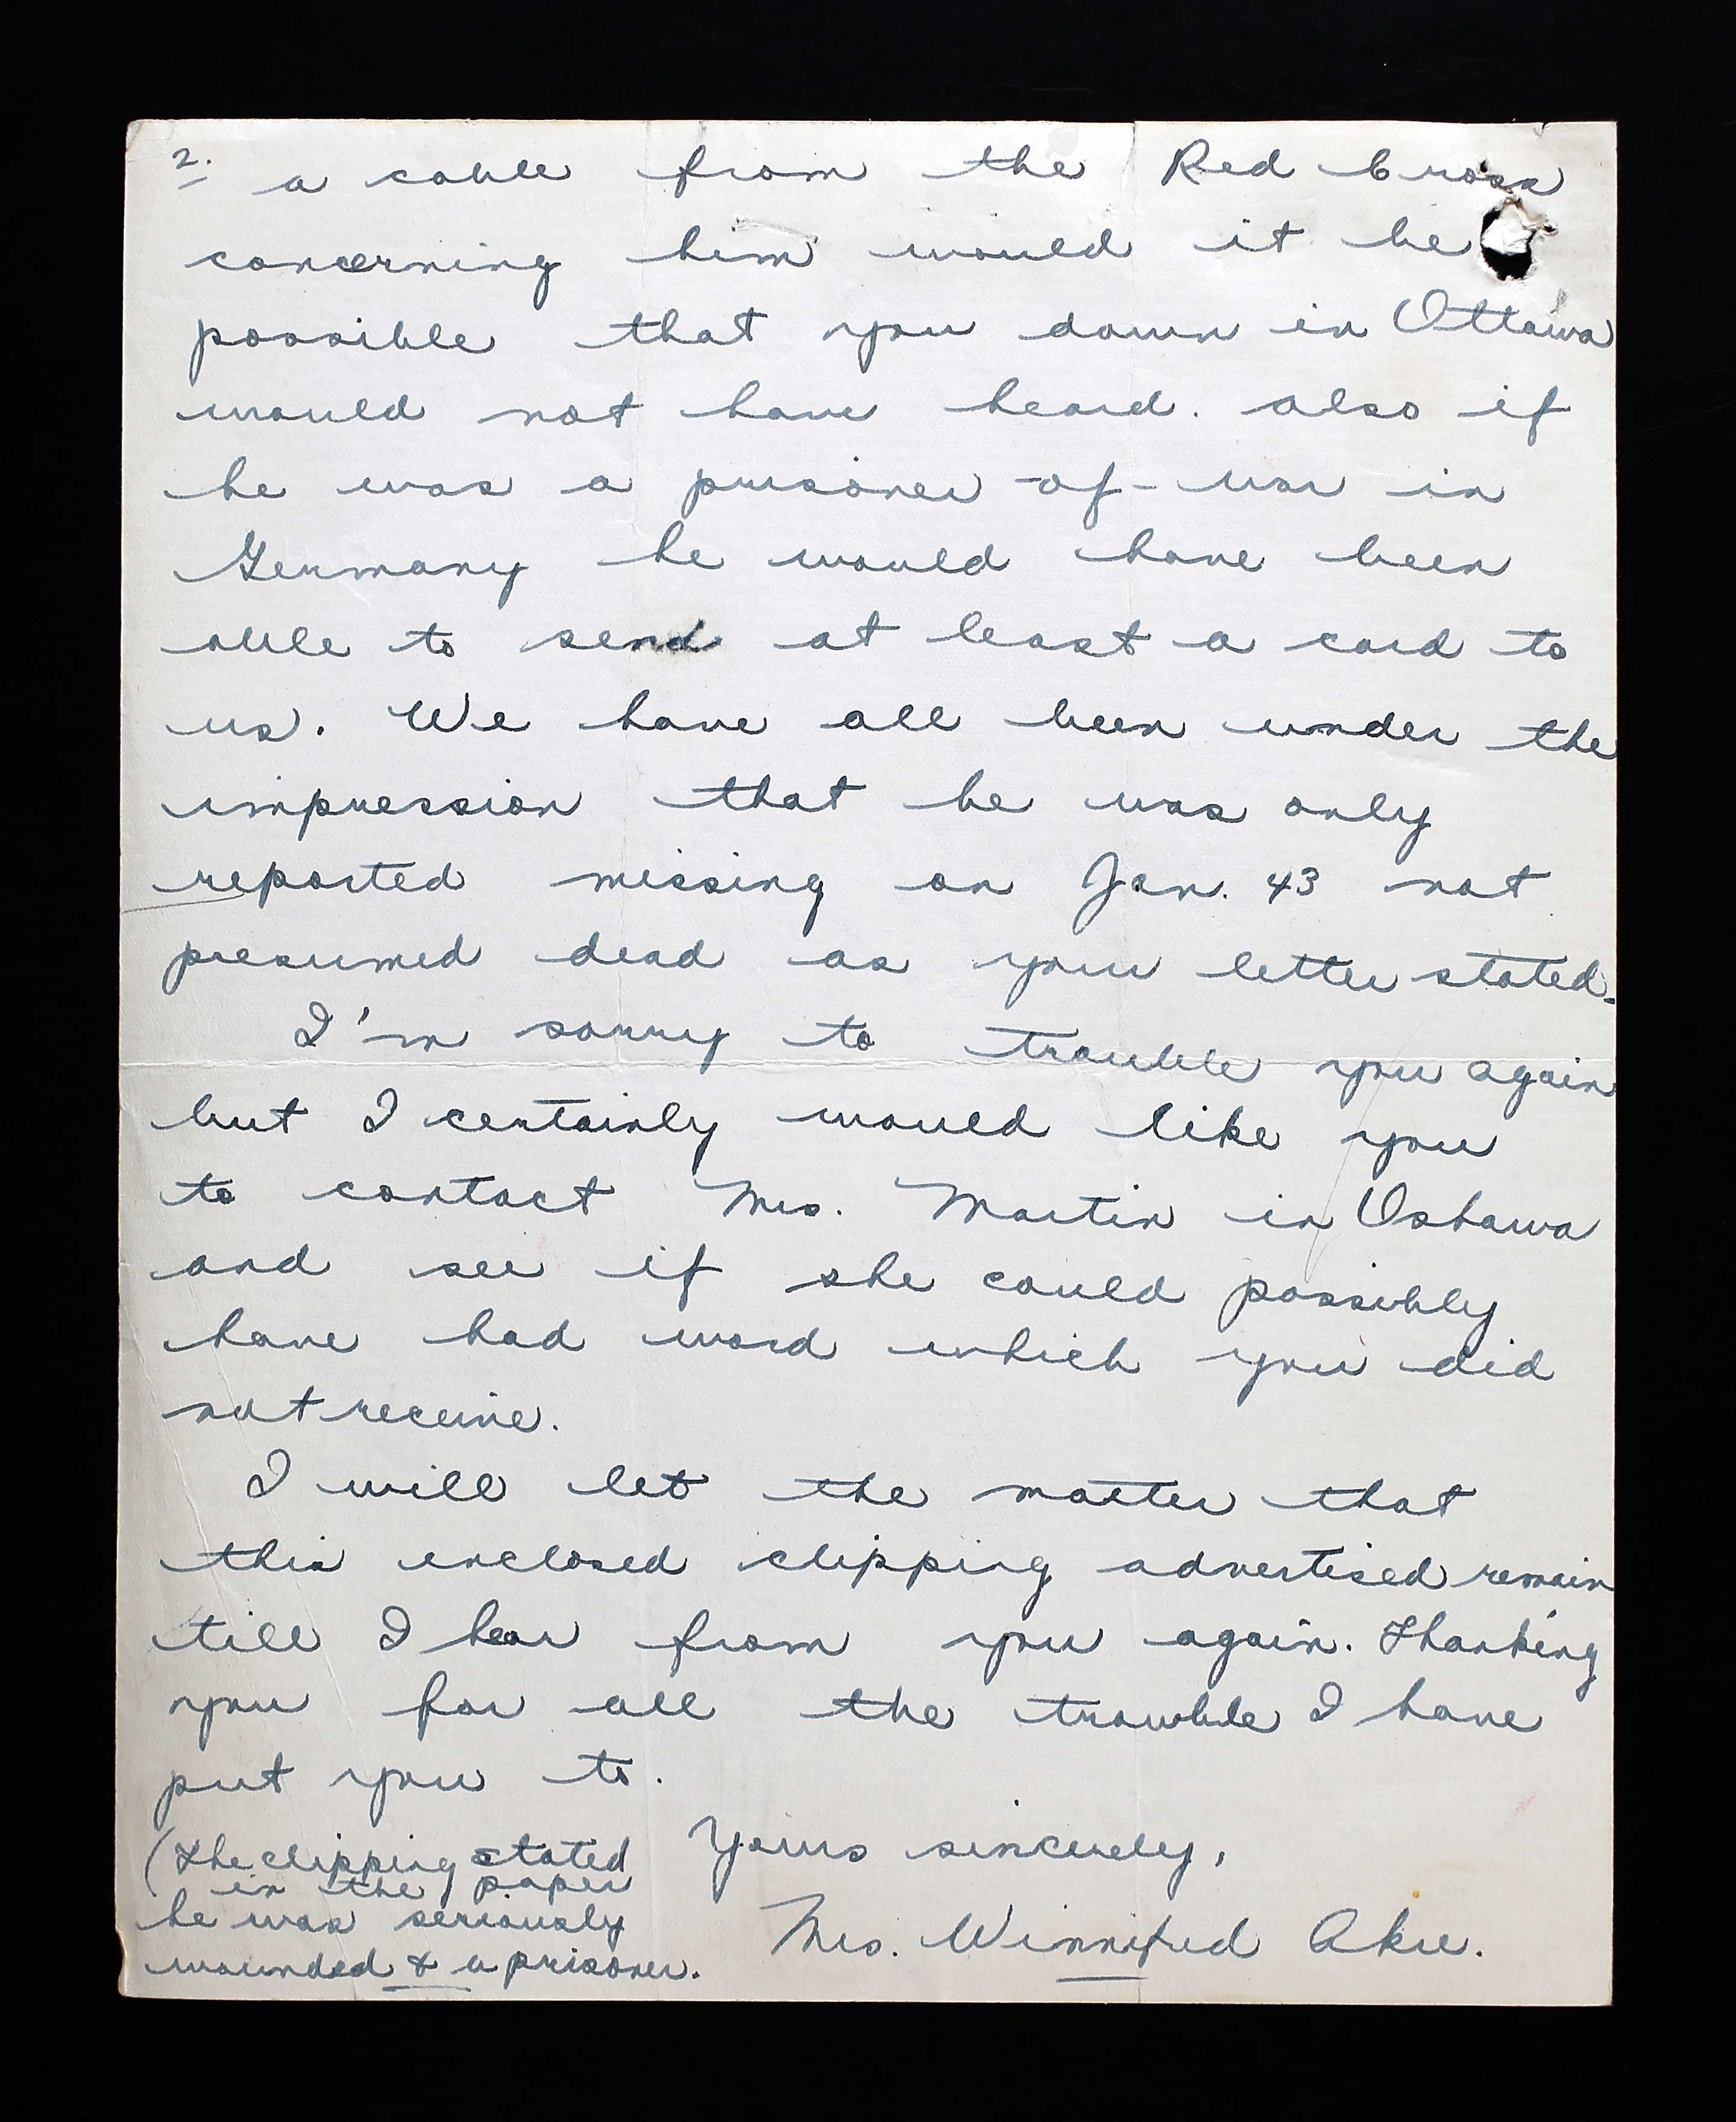 2.
a cable from the Red Cross
concerning him would it be
possible that you down in Ottawa
would not have heard. also if
he was a prisoner-of-war in
Germany he would have been
able to send at least a card to
us. We have all been under the
impression that he was only
reported missing on Jan. 43 not
presumed dead as your letter stated.
I'm sorry to trouble you again
but I certainly would like you
to contact Mrs. Martin in Oshawa
and see if she could possibly
have had word which you did
not receive.
I will let the matter that
this enclosed clipping advertised remain
till I hear from you again. Thanking
you for all the trouble I have
put you to.
Yours sincerely,
Mrs. Winnifred
(The clipping stated
in the paper
he was seriously
wounded & a prisoner.